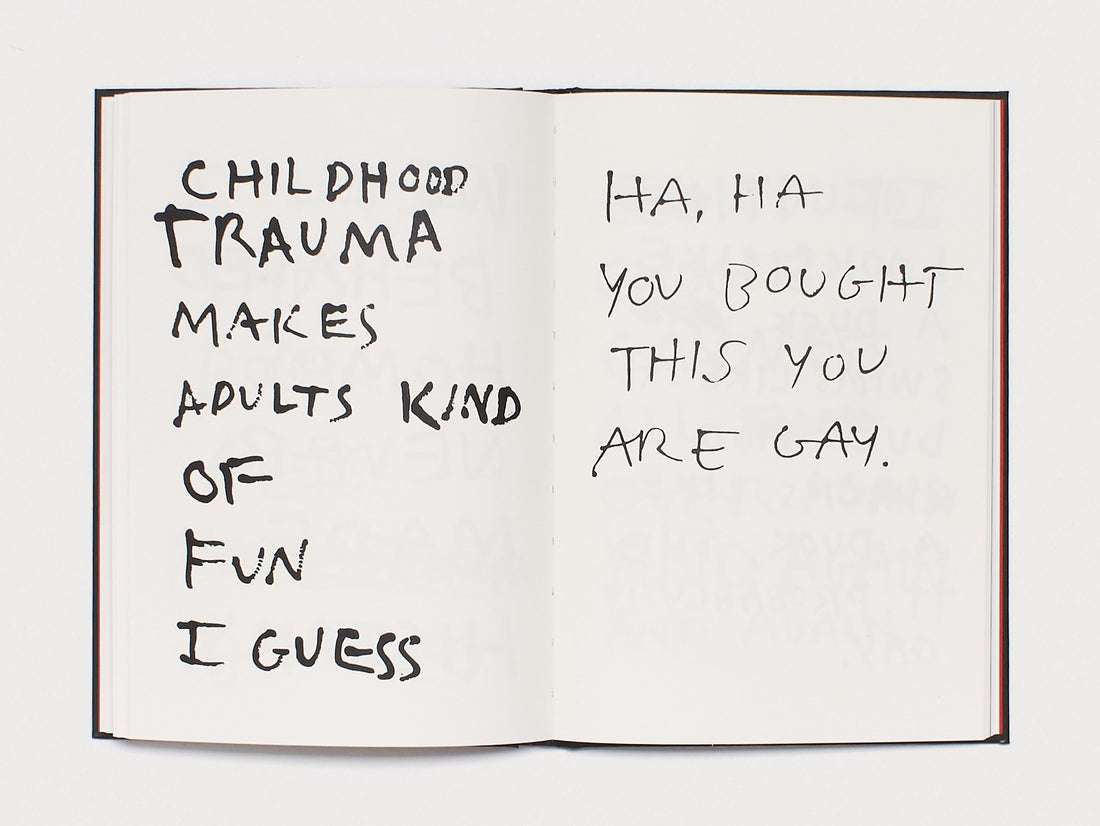 CHILDHOOD
TRAUMA
MAKES
ADULTS KIND
OF
FUN
I GUESS
HA, HA
YOU BOUGHT
THIS YOU
ARE GAY.